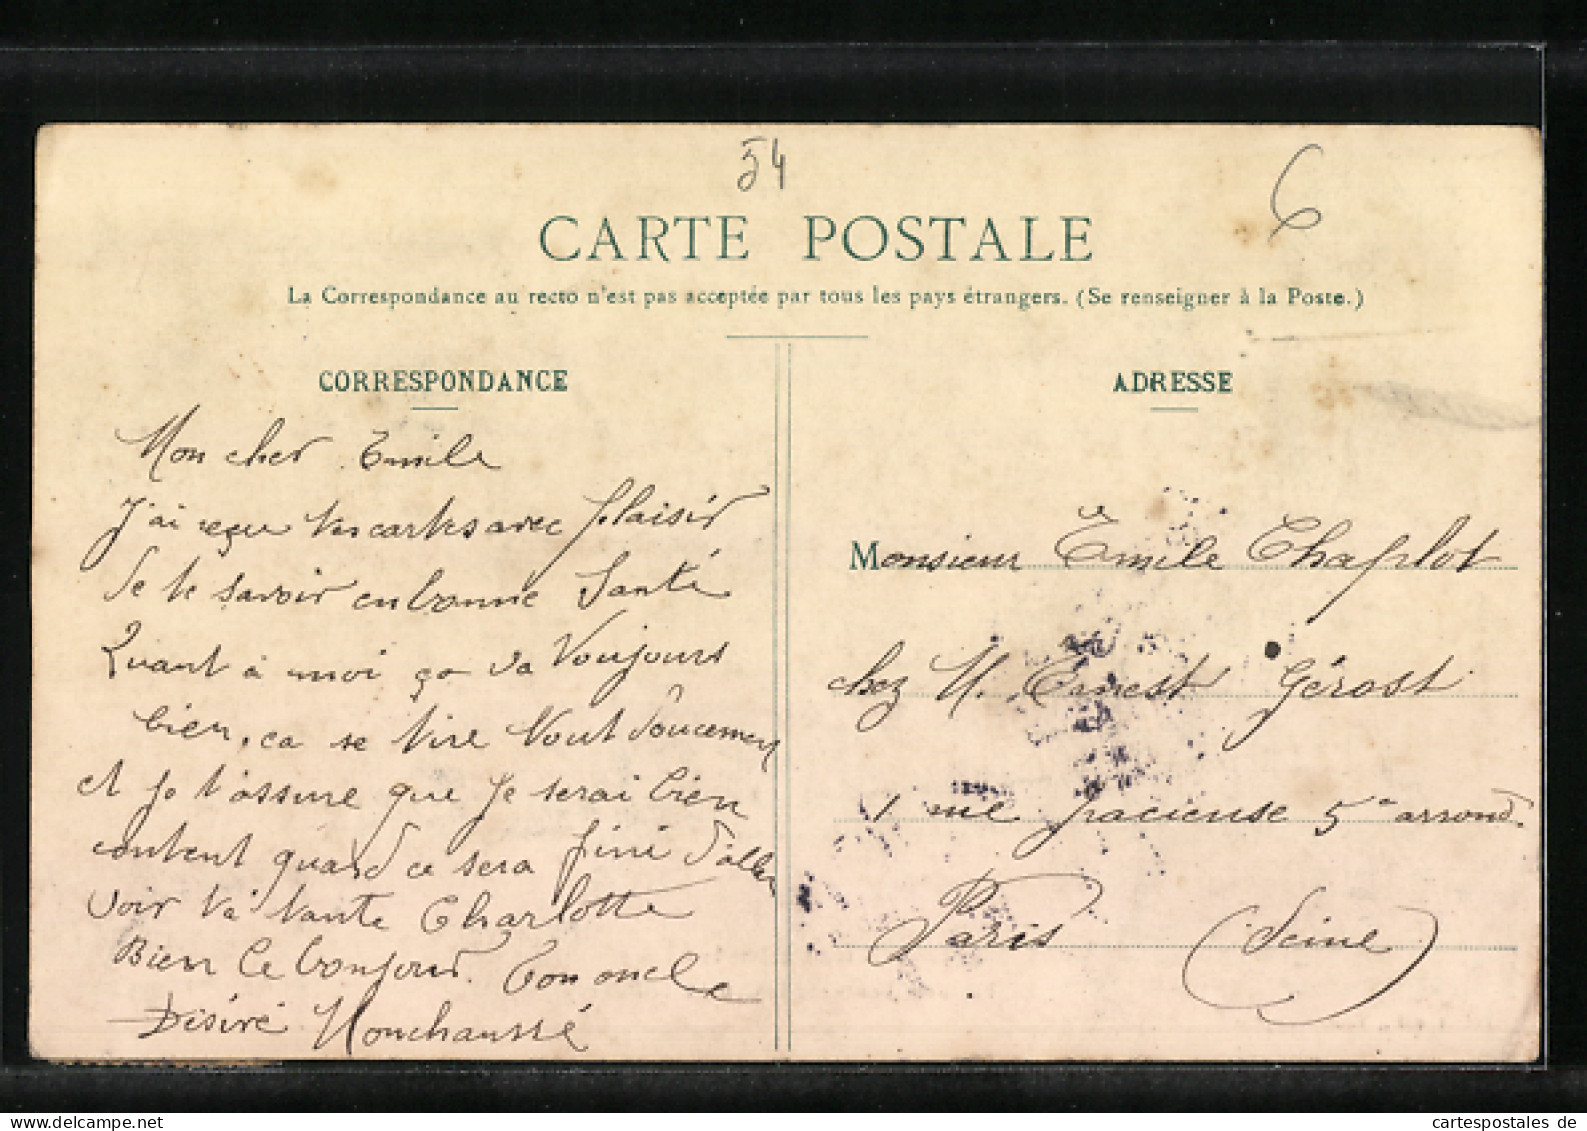 54
6
CARTE POSTALE
La Correspondance au recto n'est pas acceptée par tous les pays étrangers. (Se renseigner à la Poste.)
CORRESPONDANCE
Mon cher Emile
J'ai reçu tes cartes avec plaisir
de te savoir en bonne Santé
Quant à moi ça va toujours
bien, ca se tire tout doucement
et je t'assure que je serai bien
content quand ce sera fini d'aller
voir ta tante Charlotte
Bien le bonjour. Ton oncle
Désiré Monchaussé
ADRESSE
Monsieur Emile Chaplot
chez M. Ernest Gérost
1 rue gracieuse 5e arrond.
Paris (Seine)
cartespostales de